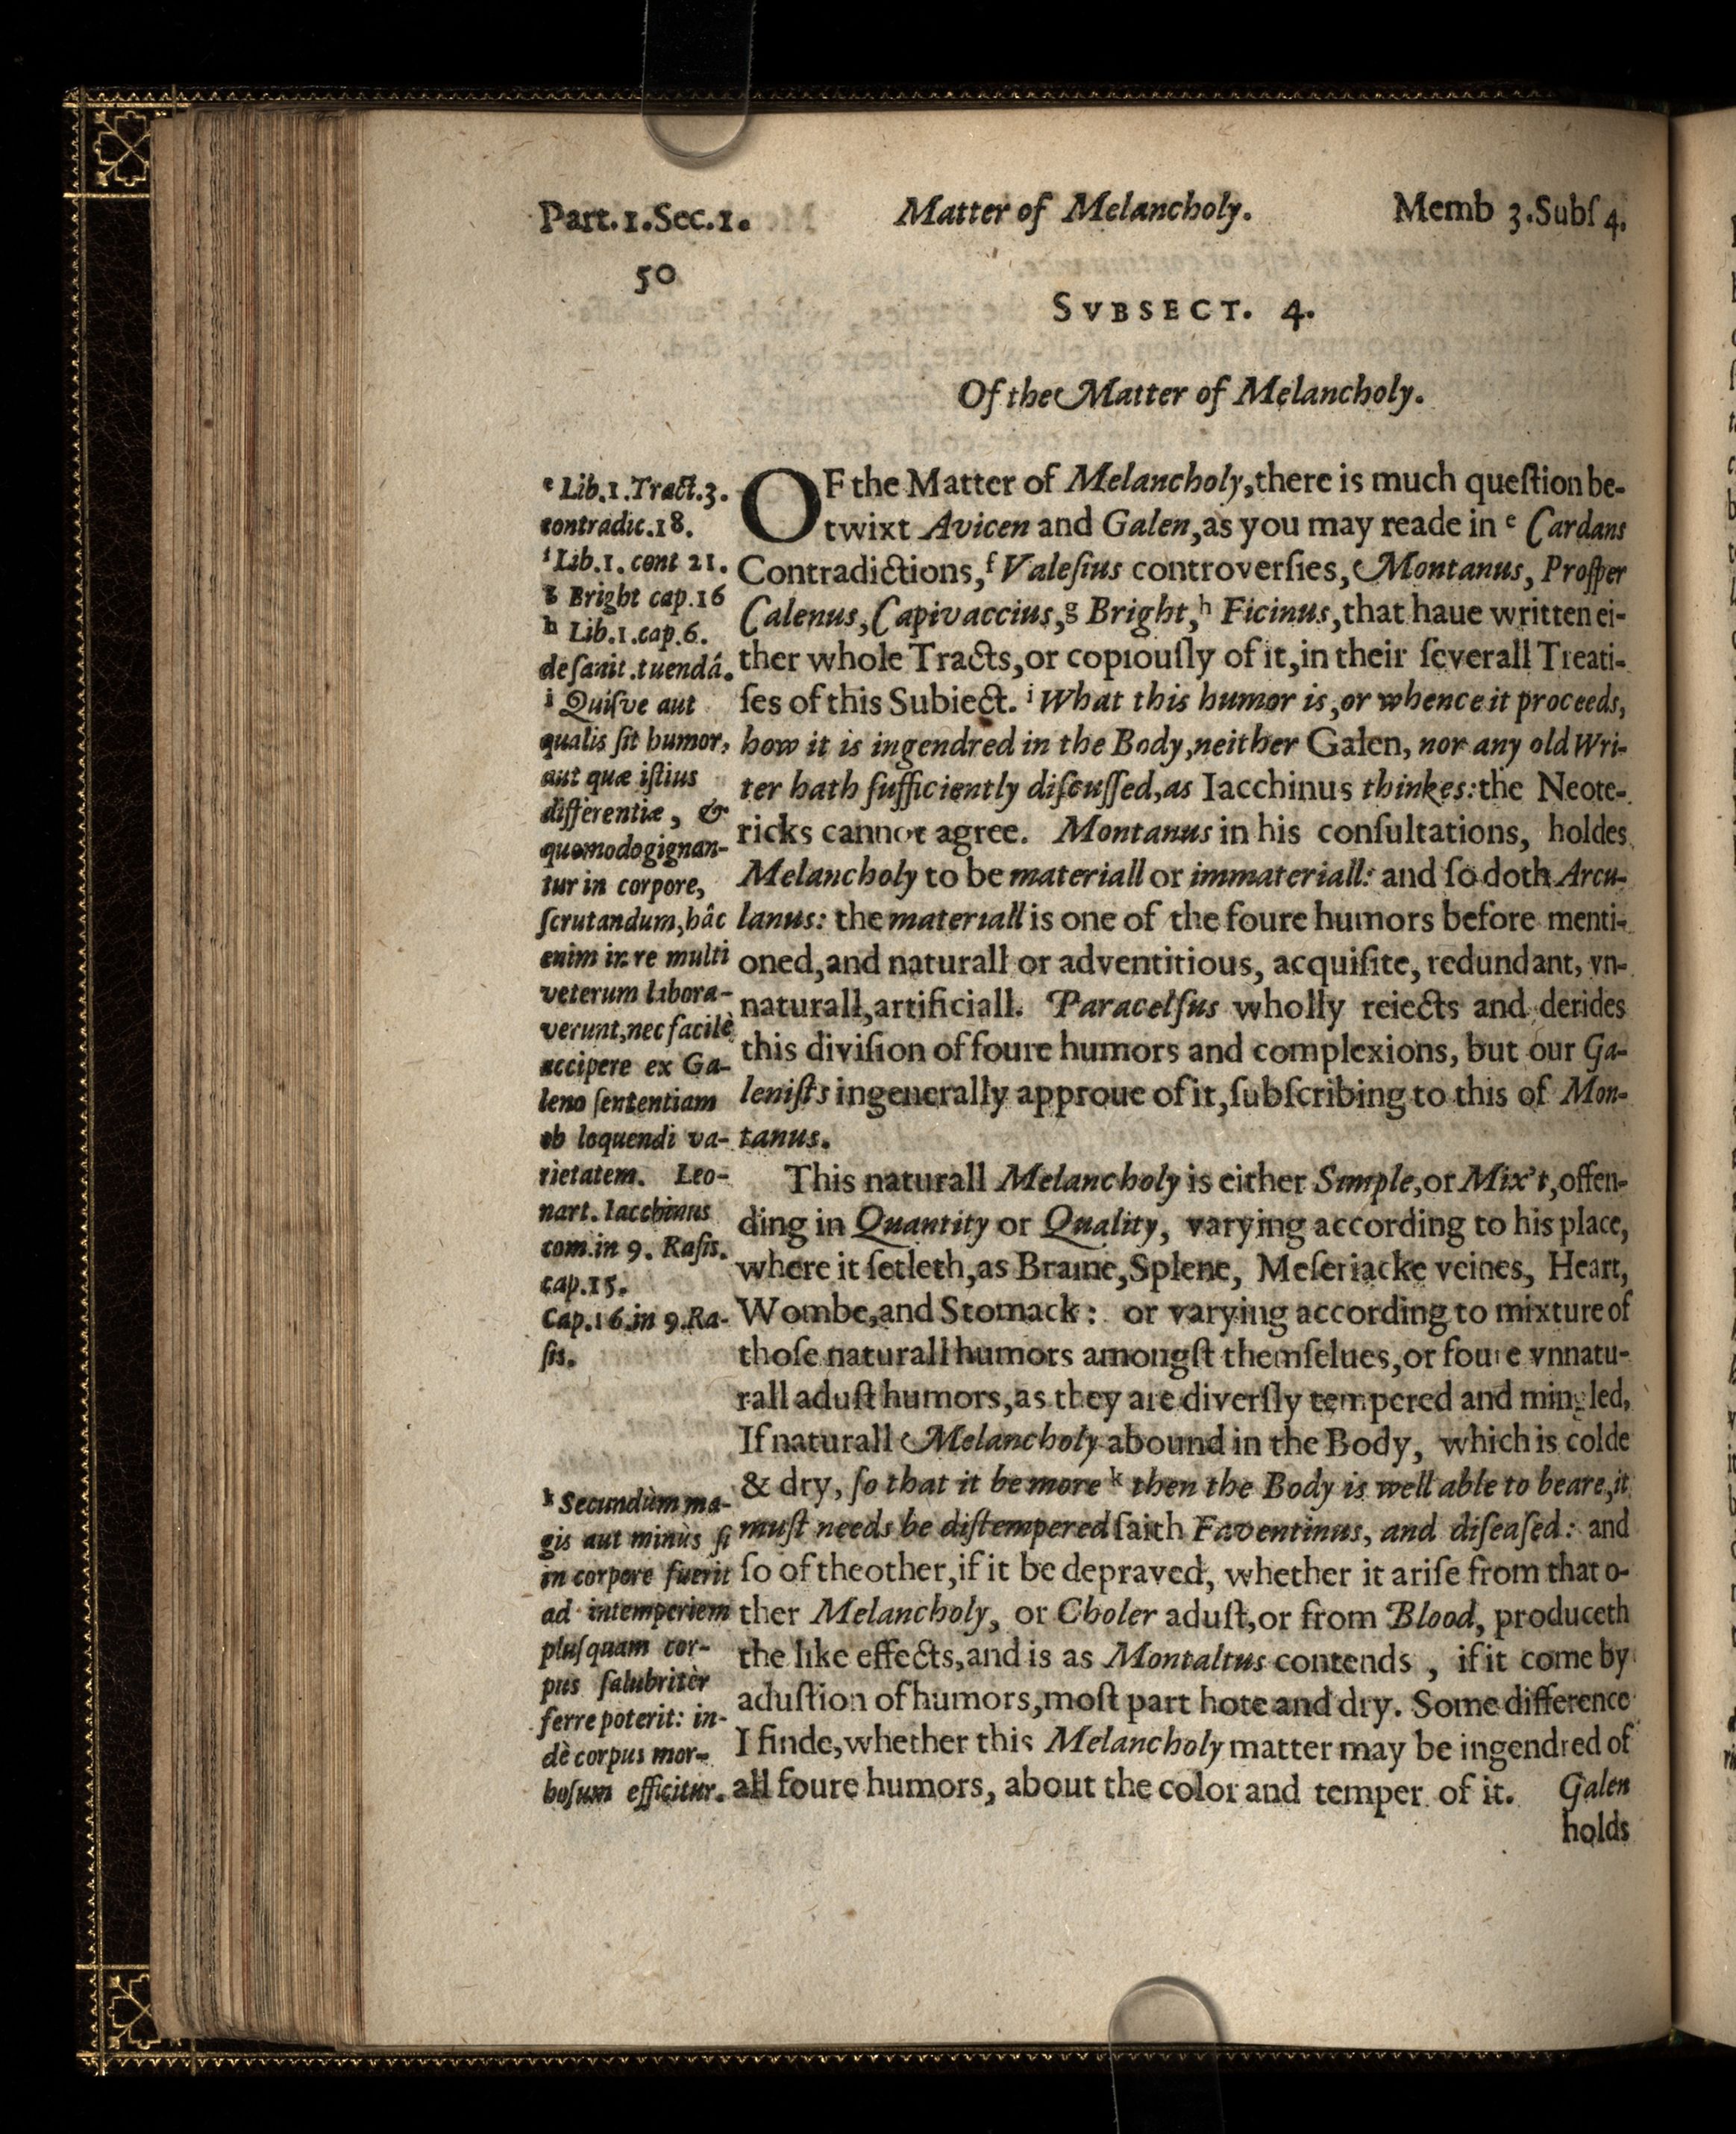 Part.1.Sec.1. Matter of Melancholy. Memb 3.Subſ 4.
50
SVBSECT. 4.
Of the Matter of Melancholy.
OF the Matter of Melancholy,there is much queſtion be-
twixt Avicen and Galen,as you may reade in e Cardans
Contradictions,f Valeſius controverſies, Montanus, Proſper
Calenus,Capivaccius,g Bright,h Ficinus,that haue written ei-
ther whole Tracts,or copiouſly of it,in their ſeverall Treati-
ſes of this Subiect. i What this humor is,or whence it proceeds,
how it is ingendred in the Body,neither Galen, nor any old Wri-
ter hath ſufficiently diſcuſſed,as Iacchinus thinkes:the Neote-
ricks cannot agree. Montanus in his conſultations, holdes
Melancholy to be materiall or immateriall: and ſo doth Arcu-
lanus: the materiall is one of the foure humors before menti-
oned,and naturall or adventitious, acquiſite, redundant, vn-
naturall,artificiall. Paracelſus wholly reiects and derides
this diviſion of foure humors and complexions, but our Ga-
leniſts ingenerally approue of it,ſubſcribing to this of Mon-
tanus.
This naturall Melancholy is either Simple,or Mix't,offen-
ding in Quantity or Quality, varying according to his place,
where it ſetleth,as Braine,Splene, Meſeriacke veines, Heart,
Wombe,and Stomack: or varying according to mixture of
thoſe naturall humors amongſt themſelues,or foure vnnatu-
rall aduſt humors,as they are diverſly tempered and mingled,
If naturall Melancholy abound in the Body, which is colde
& dry, ſo that it be more k then the Body is well able to beare,it
muſt needs be diſtempered ſaith Faventinus, and diſeaſed: and
ſo of theother,if it be depraved, whether it ariſe from that o-
ther Melancholy, or Choler aduſt,or from Blood, produceth
the like effects,and is as Montaltus contends , if it come by
aduſtion of humors,moſt part hote and dry. Some difference
I finde,whether this Melancholy matter may be ingendred of
all foure humors, about the color and temper of it. Galen
holds
e Lib.1.Tract.3.
contradic.18.
f Lib.1. cont 21.
g Bright cap.16
h Lib.1.cap.6.
de ſanit.tuendâ.
i Quiſve aut
qualis ſit humor,
aut quæ iſtius
differentiæ, &
quomodo gignan-
tur in corpore,
ſcrutandum,hâc
enim in re multi
veterum labora-
verunt,nec facilè
accipere ex Ga-
leno ſententiam
ob loquendi va-
rietatem. Leo-
nart. Iacchinus
com.in 9. Raſis.
cap.15.
Cap.16.in 9.Ra-
ſis.
k Secundùm ma-
gis aut minùs ſi
in corpore fuerit
ad intemperiem
pluſquam cor-
pus ſalubritèr
ferre poterit: in-
dè corpus mor-
boſum efficitur.